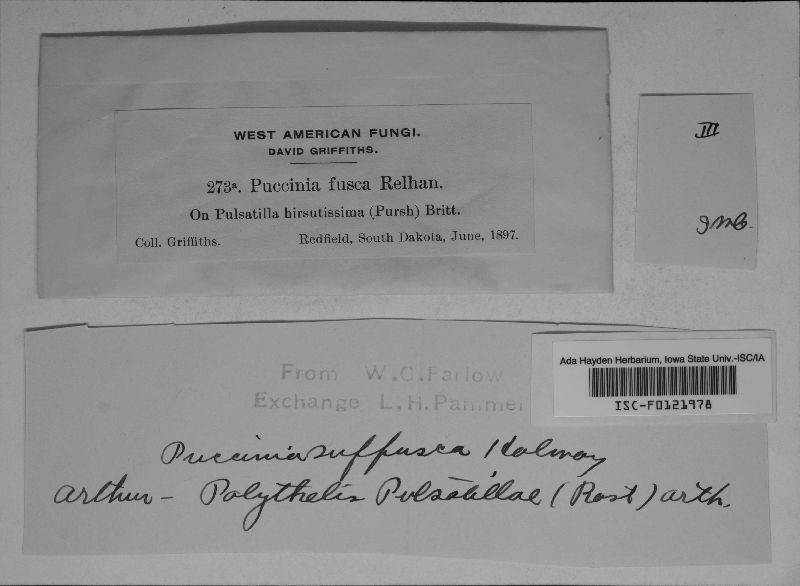 WEST AMERICAN FUNGI.
DAVID GRIFFITHS.
273a. Puccinia fusca Relhan.
On Pulsatilla hirsutissima (Pursh) Britt.
Coll. Griffiths. Redfield, South Dakota, June, 1897.
III
From W.G.Farlow
Exchange L.H.Pammel
Ada Hayden Herbarium, Iowa State Univ.-ISC/IA
ISC-F0121978
Puccinia suffusca Holway
Arthur – Polythelis Pulsatillae (Rost) Arth.